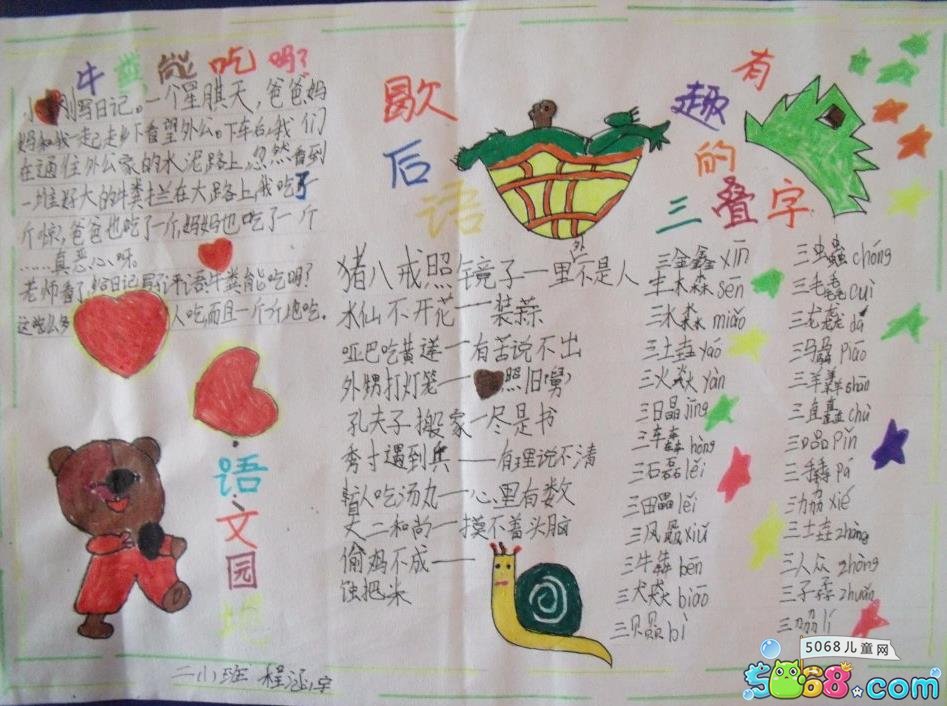 牛粪能吃吗?
小刚写日记。一个星期天,爸爸妈
妈和我一起走乡下看望外公。下车后,我们
在通往外公家的水泥路上,忽然看到
一堆好大的牛粪拦在大路上,我吃了
个惊,爸爸也吃了一个,妈妈也吃了一个
……真恶心呀。
老师看了日记写了评语:牛粪能吃吗?
这么多人吃,而且一个个地吃。
语文园地
歇后语
猪八戒照镜子一里外不是人
水仙不开花一装蒜
哑巴吃黄莲一有苦说不出
外甥打灯笼一照旧(舅)
孔夫子搬家一尽是书
秀才遇到兵——有理说不清
盲人吃汤丸一心里有数
丈二和尚一摸不着头脑
偷鸡不成——
蚀把米
有趣的三叠字
三金鑫 xīn
三木森 sēn
三水淼 miǎo
三土垚 yáo
三火焱 yàn
三日晶 jīng
三车轰 hōng
三石磊 lěi
三田畾 lěi
三风飍 xiū
三牛犇 bēn
三犬猋 biāo
三贝贔 bì
三虫蟲 chóng
三毛毳 cuì
三龙龘 dá
三马骉 piāo
三羊羴 shān
三直矗 chù
三口品 pǐn
三劦 xié
三土垚 zhòng
三人众 zhòng
三子孨 zhuǎn
三刕 lí
二小班
5068儿童网
5068.com